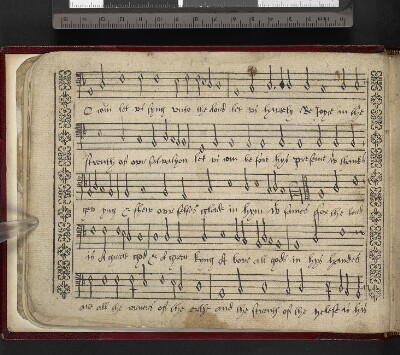 O com let vs syng vnto the lord let vs hartely Reioyce in the
strength of owr saluatyon let vs com be fore hys presence wt thanks
gev yng & shew owr selfe glad in hym wt psalmes ffor the lord
is A grett god & A grett kyng A bove all gods in hys handes
are all the corners of the erth and the streng of the hylls is hys